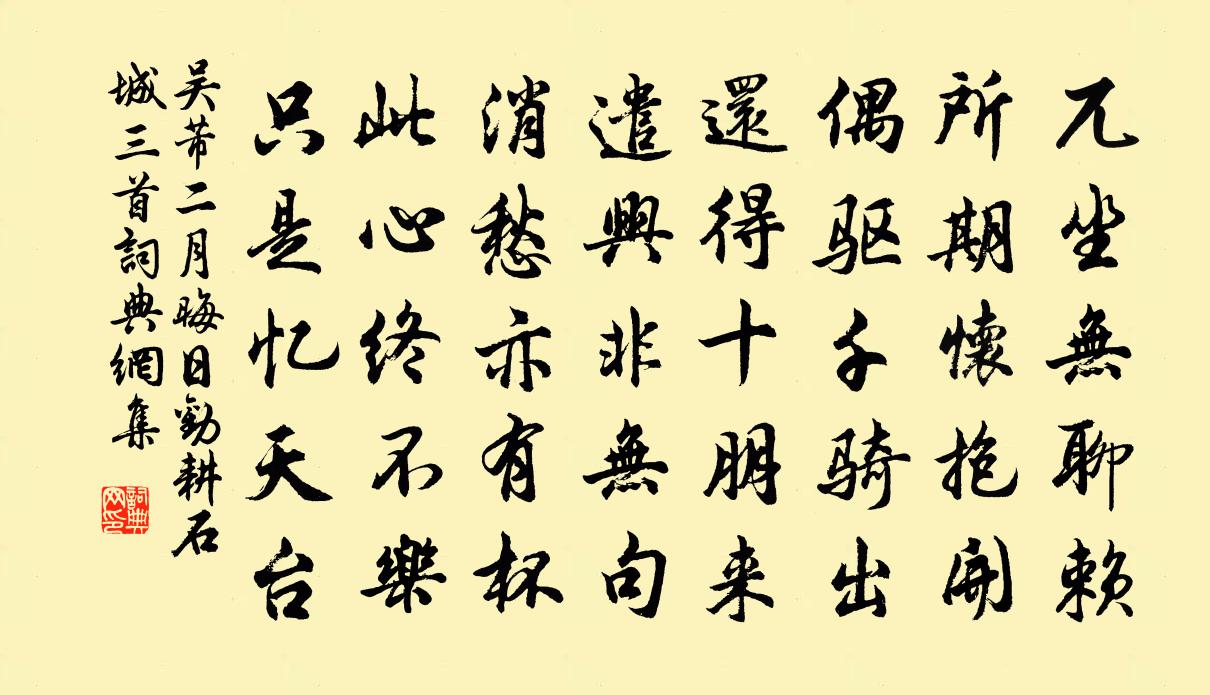 兀坐無聊赖
所期懷抱開
偶驱千骑出
還得十朋来
遣興非無句
消愁亦有杯
此心终不樂
只是忆天台
吴芾二月晦日勸耕石
城三首詞典網集
詞典网印